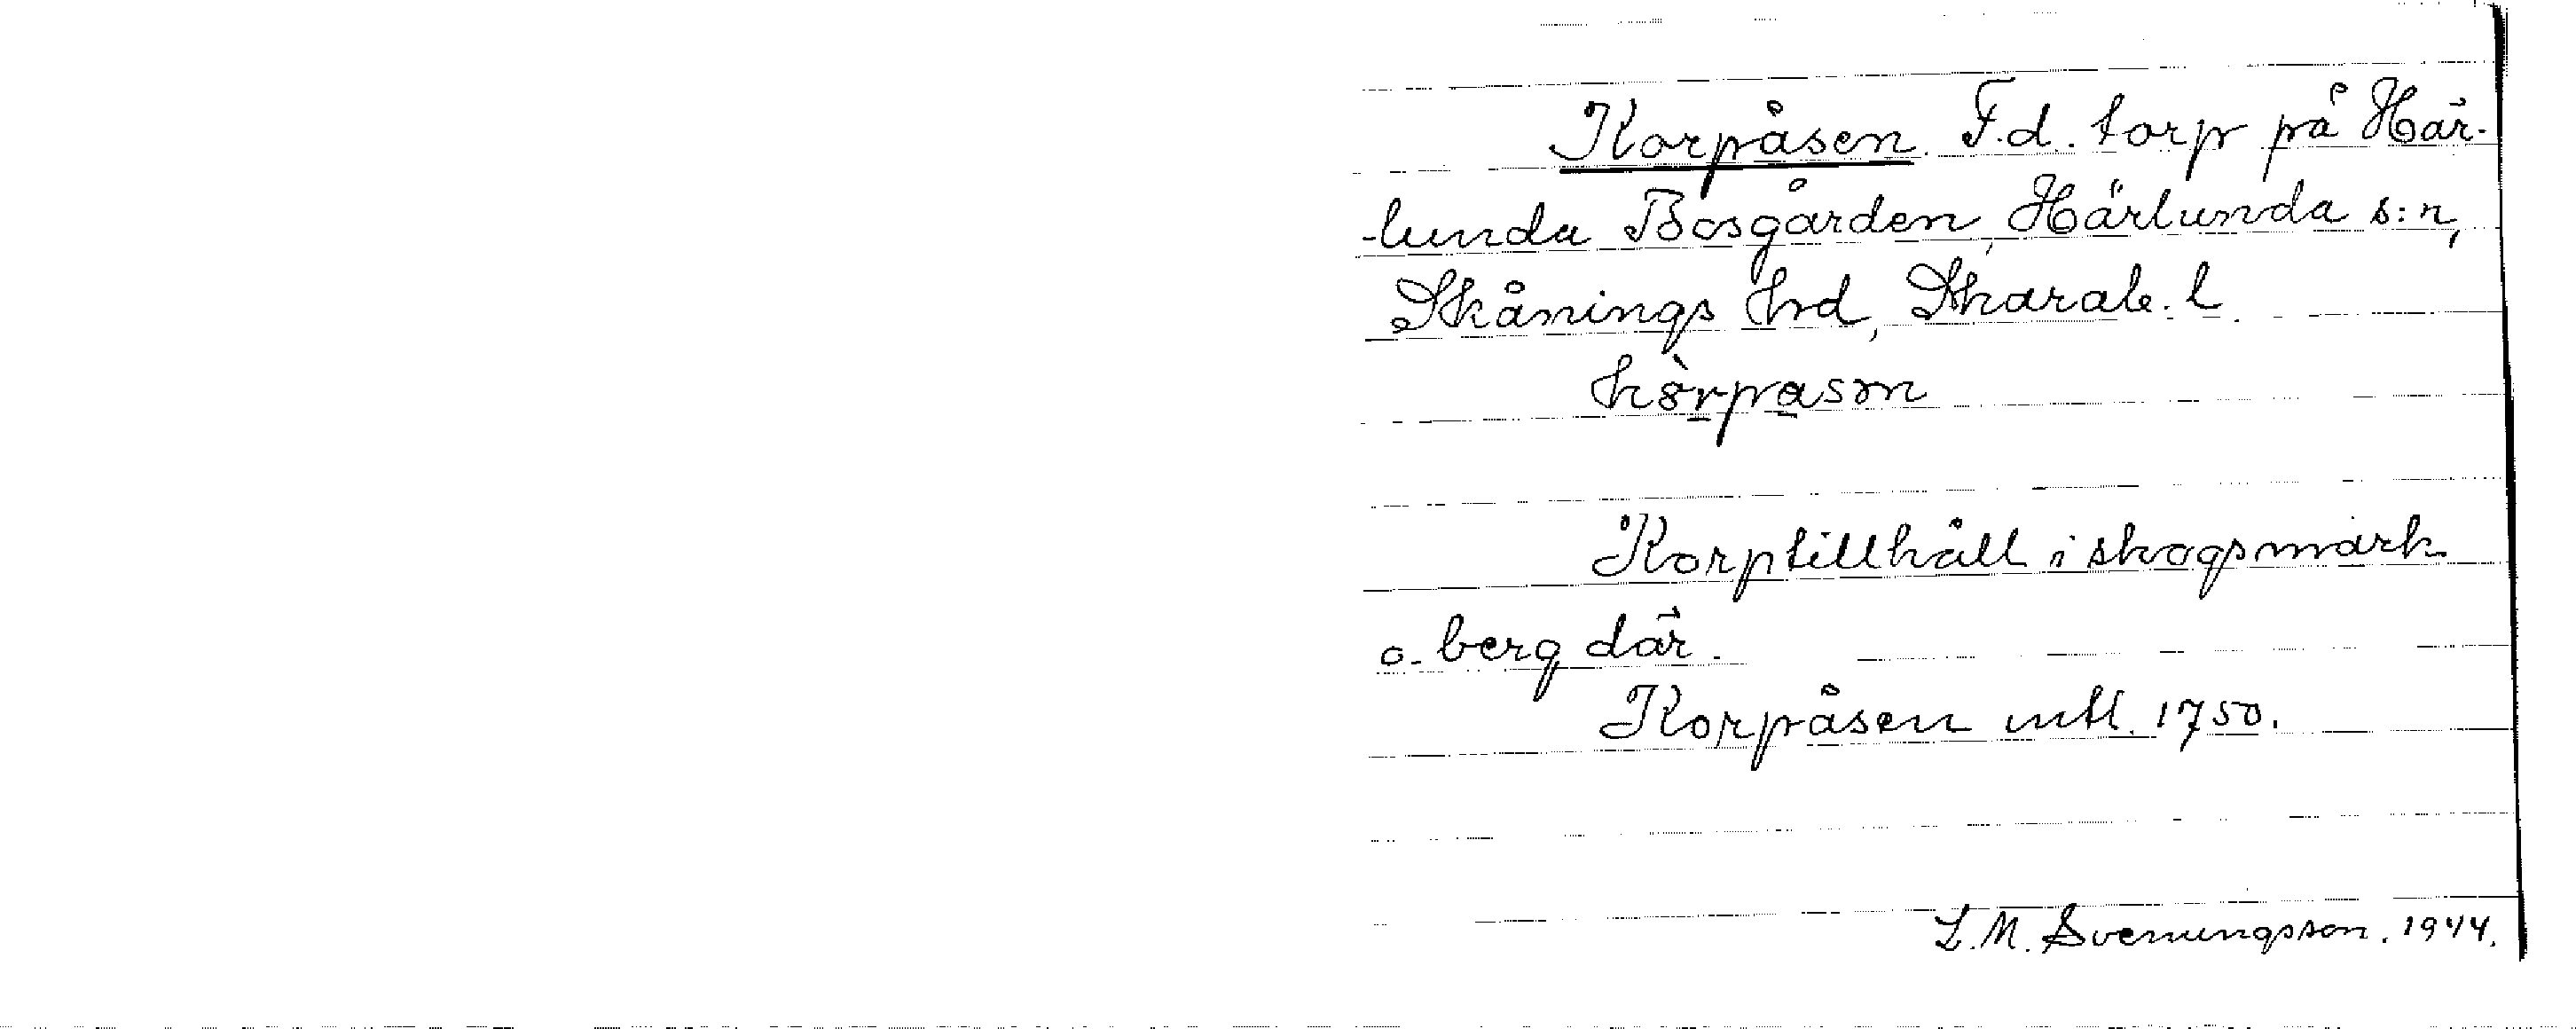 Korpåsen. F.d. torp på Här-
-lunda Bosgården, Härlunda s:n,
Skånings hd, Skarab. l.
Korptillhåll i skogsmark
o. berg där.
Korpåsen mtl. 1750.
L. M. Svenungsson. 1944.